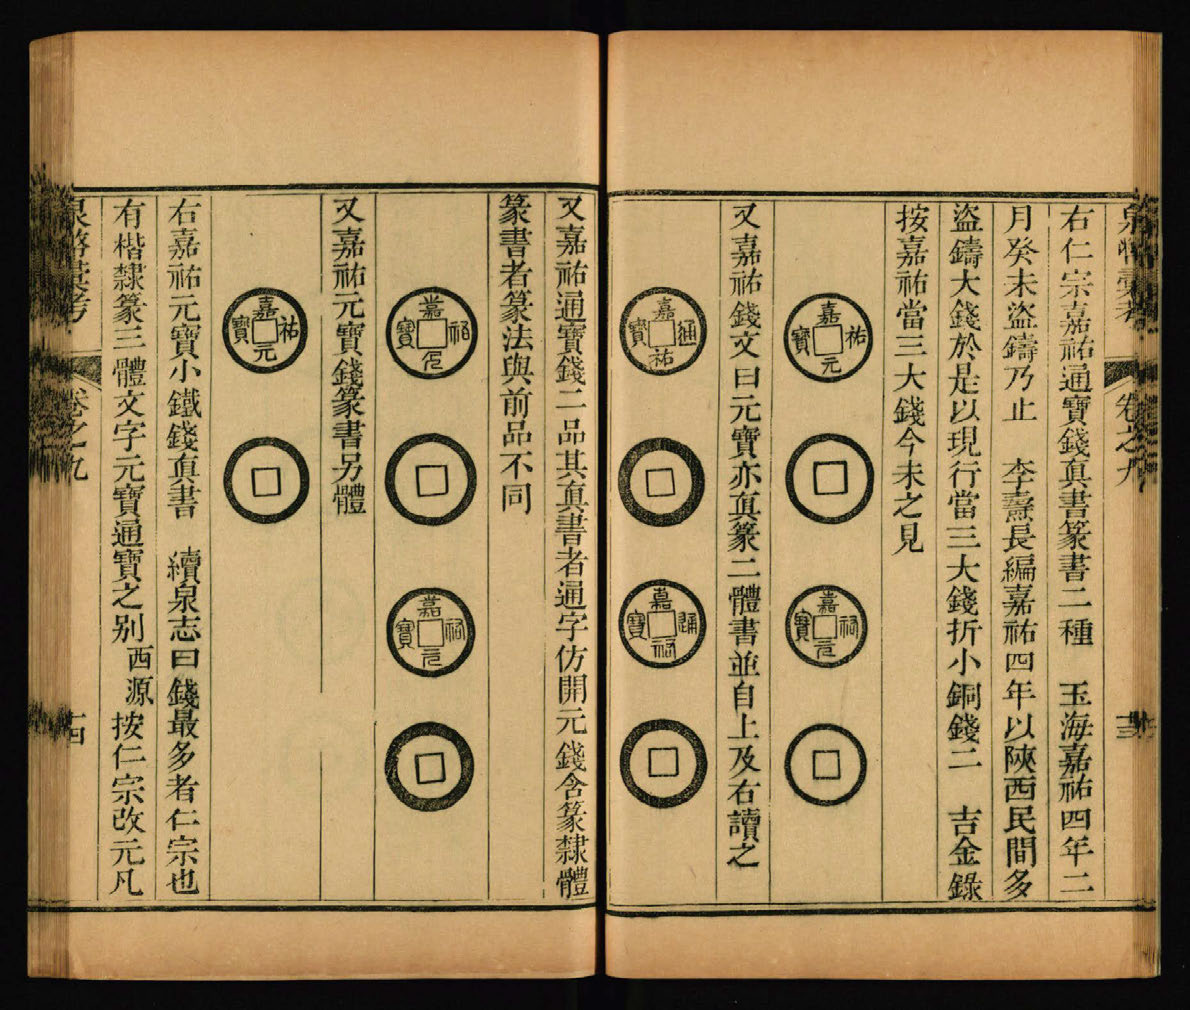 泉幣彙考 卷之九 十三
右仁宗嘉祐通寶錢眞書篆書二種 玉海嘉祐四年二
月癸未盜鑄乃止 李燾長編嘉祐四年以陝西民間多
盜鑄大錢於是以現行當三大錢折小銅錢二 吉金錄
按嘉祐當三大錢今未之見
嘉祐元寶
嘉祐元寶
又嘉祐錢文曰元寶亦眞篆二體書並自上及右讀之
嘉通祐寶
嘉通祐寶
又嘉祐通寶錢二品其眞書者通字仿開元錢含篆隸體
篆書者篆法與前品不同
嘉祐元寶
嘉祐元寶
又嘉祐元寶錢篆書另體
嘉祐元寶
右嘉祐元寶小鐵錢眞書 續泉志曰錢最多者仁宗也
有楷隸篆三體文字元寶通寶之別 西源按仁宗改元凡
泉幣彙考 卷之九 十四